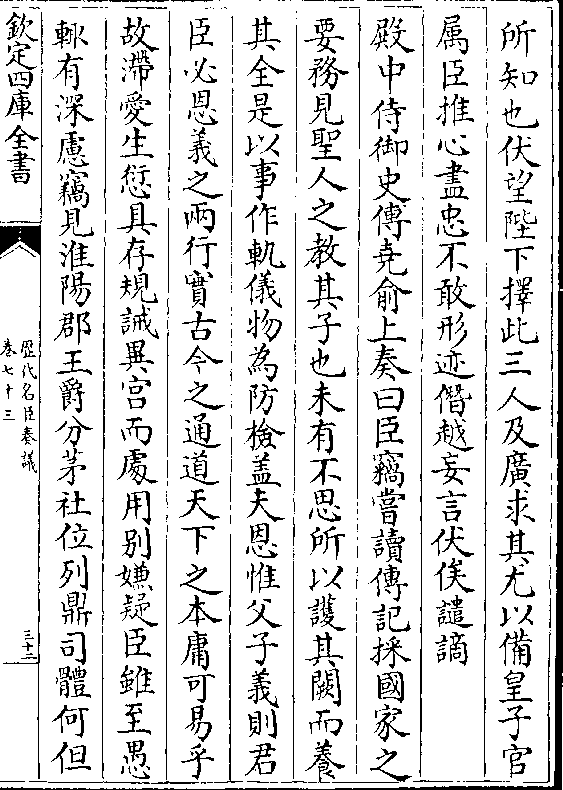 所知也伏望陛下擇此三人及廣求其尤以備皇子官
属臣推心盡忠不敢形迹僭越妄言伏俟譴謫
殿中侍御史傅堯俞上奏曰臣竊嘗讀傳記採國家之
要務見聖人之教其子也未有不思所以護其闕而養
其全是以事作軌儀物為防檢盖夫恩惟父子義則君
臣必恩義之兩行實古今之通道天下之本庸可易乎
故滯愛生愆具存規誡異宫而處用别嫌疑臣雖至愚
輒有深慮竊見淮陽郡王爵分茅社位列鼎司體何但
欽定四庫全書
歷代名臣奏議
卷七十三
三十二